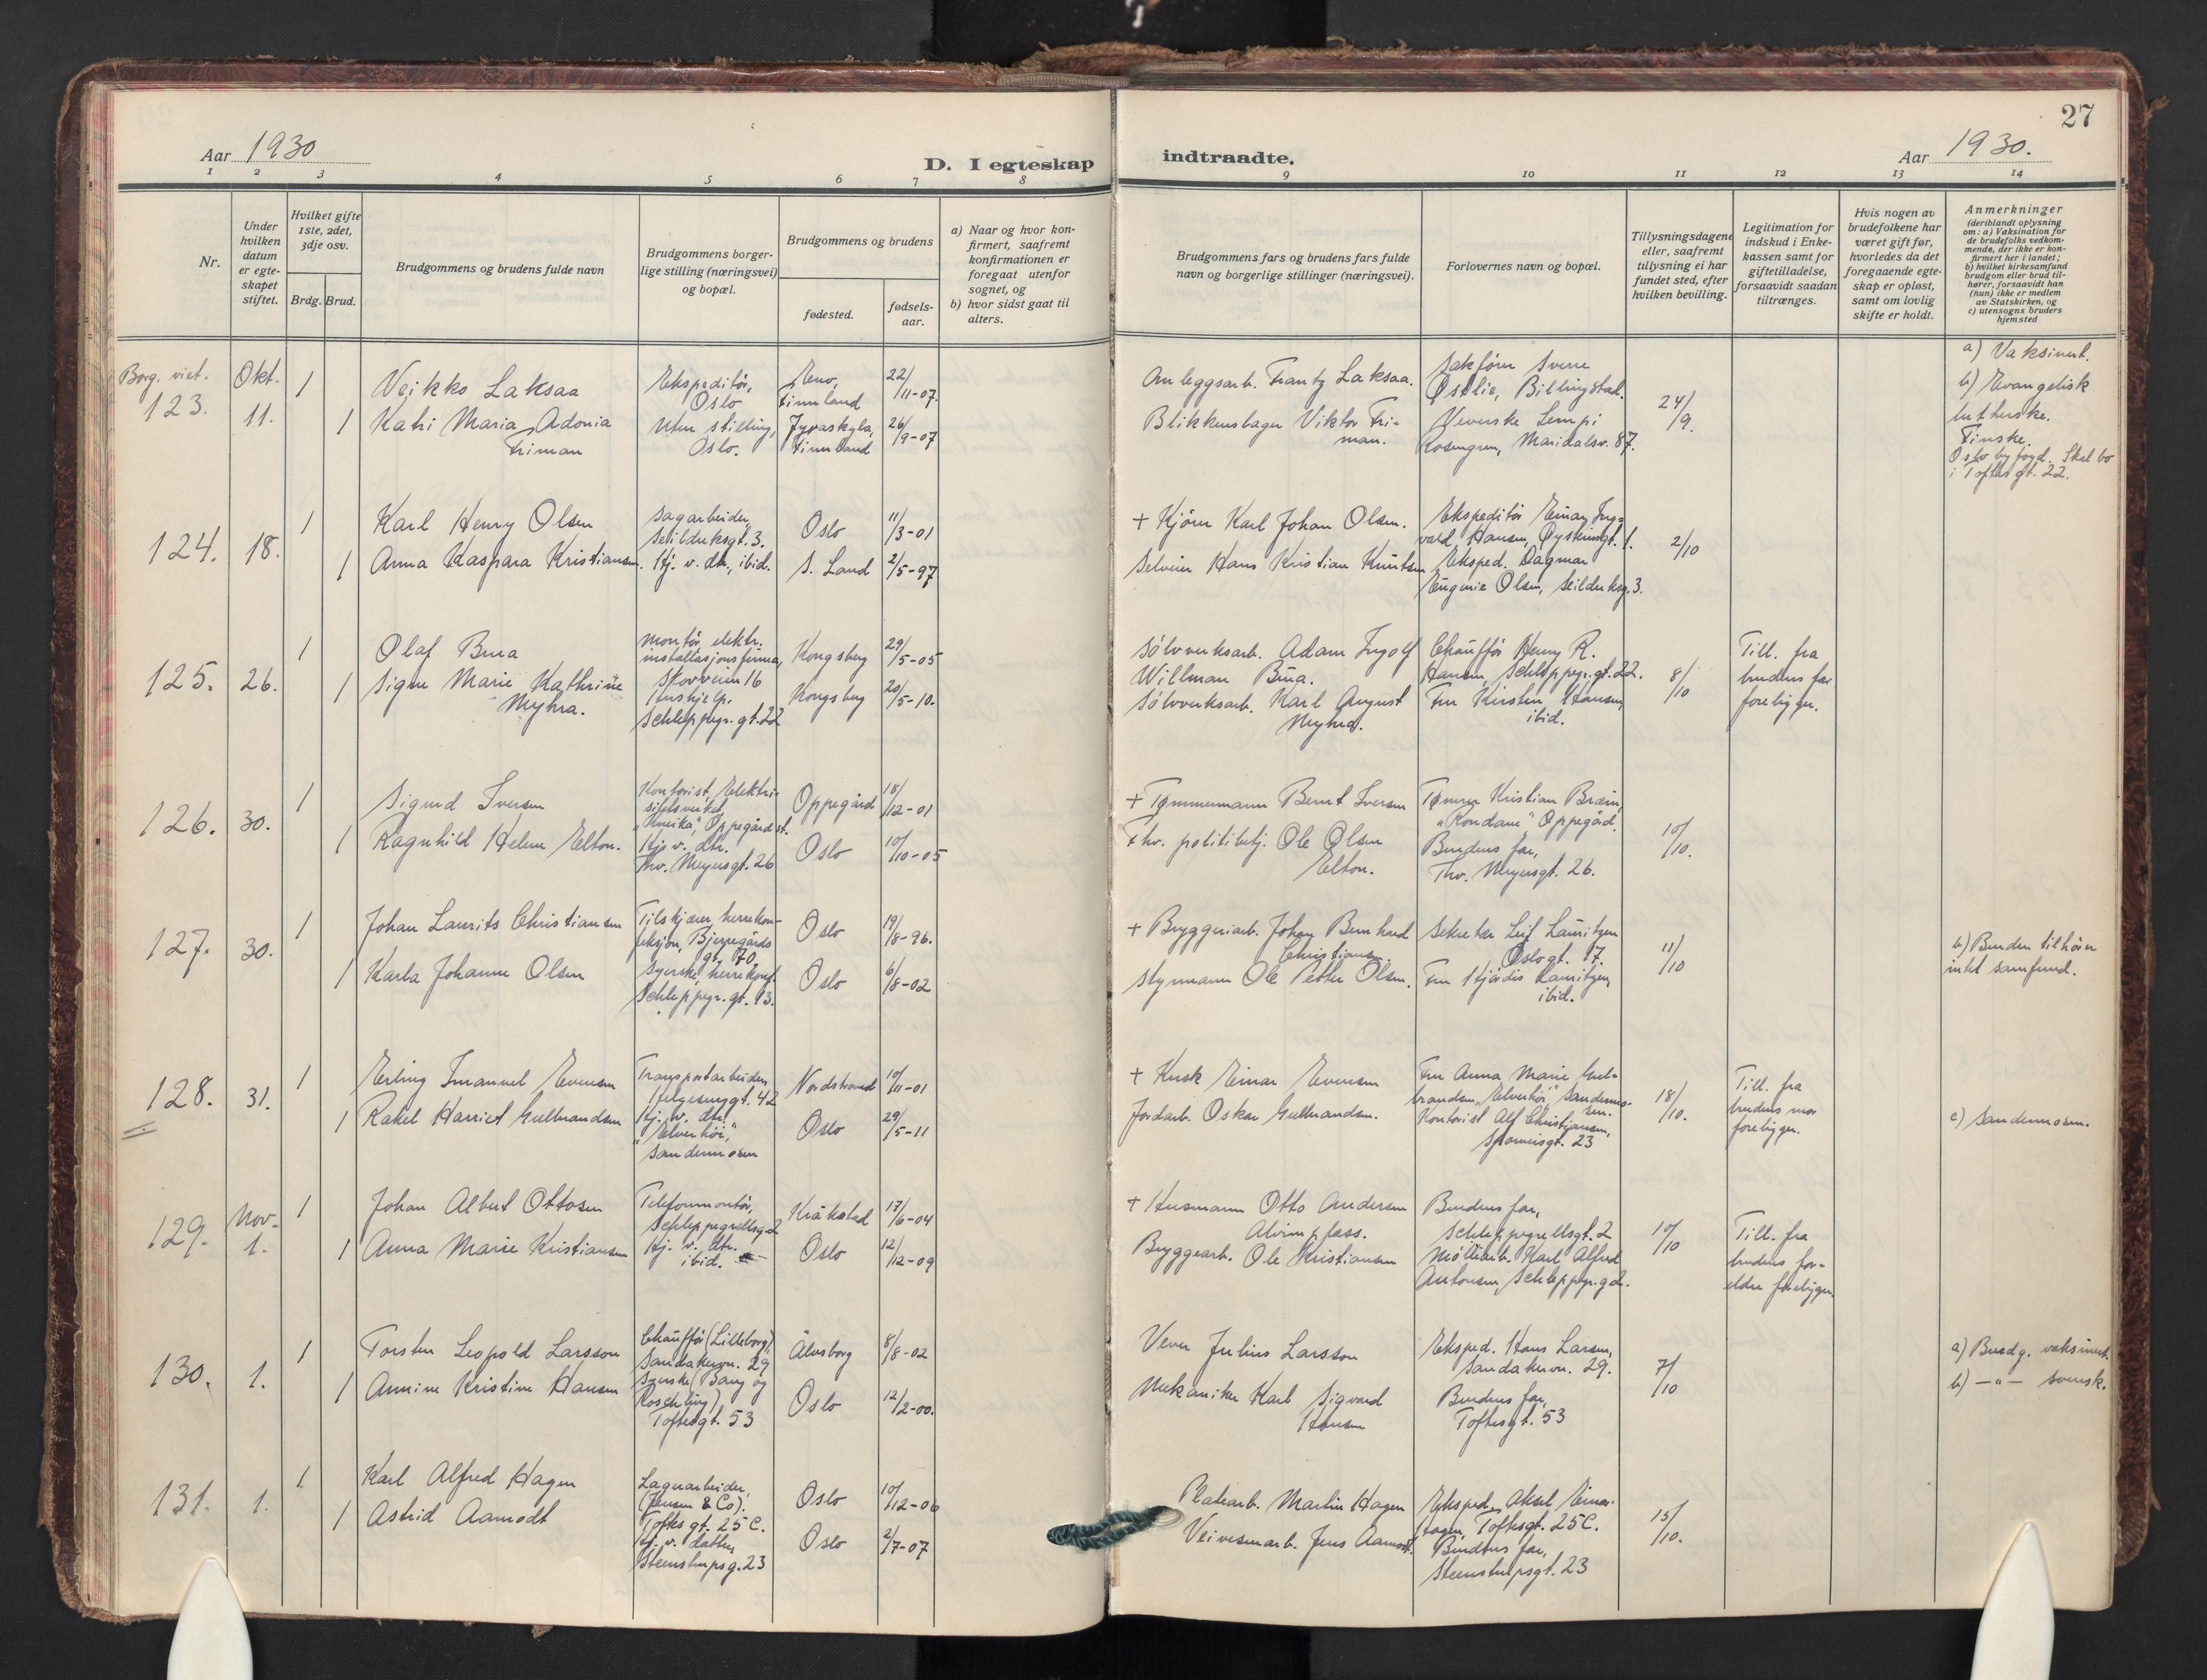 27
Aar 1930
D. I egteskap
indtraadte.
Aar 1930.
1 2 3 4 5 6 7 8 9 10 11 12 13 14
Nr.
Under hvilken datum er egte- skapet stiftet.
Hvilket gifte 1ste, 2det, 3dje osv.
Brdg. Brud.
Brudgommens og brudens fulde navn
Brudgommens borger- lige stilling (næringsvei) og bopæl.
Brudgommens og brudens
fødested.
fødsels- aar.
a) Naar og hvor kon- firmert, saafremt konfirmationen er foregaat utenfor sognet, og
b) hvor sidst gaat til alters.
Brudgommens fars og brudens fars fulde navn og borgerlige stillinger (næringsvei).
Forlovernes navn og bopæl.
Tillysningsdagene eller, saafremt tillysning ei har fundet sted, efter hvilken bevilling.
Legitimation for indskud i Enke- kassen samt for giftetilladelse, forsaavidt saadan tiltrænges.
Hvis nogen av brudefolkene har været gift før, hvorledes da det foregaaende egte- skap er opløst, samt om lovlig skifte er holdt.
Anmerkninger
(deriblandt oplysning om: a) Vaksination for de brudefolks vedkom- mende, der ikke er kon- firmert her i landet;
b) hvilket kirkesamfund brudgom eller brud til- hører, forsaavidt han (hun) ikke er medlem av Statskirken, og
c) utensogns bruders hjemsted
Borg. viet.
123.
Okt.
11.
1
Veikko Laksaa
Ekspeditør,
Oslo
Eno,
Finnland
22/11-07.
1
Katri Maria Adonia
Friman
Uten stilling,
Oslo.
Jyvaskyla,
Finnland
26/9-07
Anleggsarb. Frantz Laksaa.
Blikkenslager Viktor Fri-
man.
Sakfører Sverre
Østlie, Billingstad.
Veverske Lempi
Rosengren, Maridalsv. 87.
24/9.
a) Vaksinert.
b) Evangelisk
lutherske.
Finske.
Oslo byfogd. Skal bo
i Toftesgt. 22.
124.
18.
1
Karl Henry Olsen
Sagarbeider,
Seilduksgt. 3.
Oslo
11/3-01
1
Anna Kaspara Kristiansen.
Hj. v. dtr., ibid.
S. Land
2/5-97
+ Kjører Karl Johan Olsen.
Selveier Hans Kristian Knutsen
Ekspeditør Einar Ing-
vald Hansen, Øysteinsgt. 1.
Eksped. Dagmar
Eugenie Olsen, Seilduksg. 3.
2/10
125.
26.
1
Olaf Brua
Montør, elektr.
installasjonsfirma,
Skovveien 16
Kongsberg
29/5-05
1
Signe Marie Kathrine
Myhra.
Hushjelp.
Schleppegr. gt. 22
Kongsberg
20/5-10.
Sølvverksarb. Adam Ingolf
Willman Brua.
Sølvverksarb. Karl August
Myhra.
Chauffør Henry R.
Hansen, Schleppegr. gt. 22.
Fru Kirsten Hansen,
ibid.
8/10
Till. fra
brudens far
foreligger.
126.
30.
1
Sigurd Iversen
Kontorist, Elektri-
sitetsverket,
"Utsikta", Oppegård st.
Oppegård
18/12-01
1
Ragnhild Helene Elton.
Hj. v. dtr.
Thv. Meyersgt. 26
Oslo
10/10-05
+ Tømmermann Bernt Iversen
+ hv. politibetj. Ole Olsen
Elton.
Tømrer Kristian Bræin,
"Rondane" Oppegård.
Brudens far,
Thv. Meyersgt. 26.
10/10.
127.
30.
1
Johan Laurits Christiansen
Tilskjærer, herrekon-
feksjon, Bjerregårds
gt. 70.
Oslo
19/8-96.
1
Karla Johanne Olsen
Syerske, herrekonf.
Schleppegr. gt. 13.
Oslo
6/8-02
+ Bryggeriarb. Johan Bernhard
Christiansen.
Styrmann Ole Petter Olsen.
Sekretær Leif Lauritzen
Oslogt. 17.
Fru Hjørdis Lauritzen,
ibid.
11/10
b) Bruden tilhører
intet samfund.
128.
31.
1
Erling Imanuel Evensen
Transportarbeider,
Helgesensgt. 42
Nordstrand
10/11-01
1
Rakel Harriet Gulbrandsen
Hj. v. dtr.
"Elverhøi",
Sandermosen
Oslo
29/5-11
+ Kusk Einar Evensen
Jordarb. Oskar Gulbrandsen.
Fru Anna Marie Gul-
brandsen, "Elverhøi", Sandermo-
sen.
Kontorist Alf Christiansen,
Spaniensgt. 23
18/10.
Till. fra
brudens mor
foreligger.
c) Sandermosen.
129.
Nov.
1.
1
Johan Albert Ottosen
Telefonmontør,
Schleppegrellsg. 2
Kråkstad
17/6-04
1
Anna Marie Kristiansen
Hj. v. dtr.
ibid.
Oslo
12/12-09
+ Husmann Otto Andersen
Alvimplass.
Bryggearb. Ole Kristiansen
Brudens far,
Schleppegrellsgt. 2
Møllearb. Karl Alfred
Antonsen, Schleppegr. g. 2.
10/10
Till. fra
brudens for-
eldre foreligger.
130.
1.
1
Torsten Leopold Larsson
Chauffør (Lilleborg),
Sandakervn. 29
Älvsborg
8/8-02
1
Annine Kristine Hansen
Syerske (Bang og
Roschling)
Toftesgt. 53
Oslo
12/2-00.
Vever Julius Larsson
Mekaniker Karl Sigvard
Hansen
Eksped. Hans Larsen,
Sandakervn. 29.
Brudens far,
Toftesgt. 53
7/10
a) Brudg. vaksinert.
b) —"— svensk.
131.
1.
1
Karl Alfred Hagen
Lagerarbeider,
(Jensen & Co).
Toftes gt. 25 C.
Oslo
10/12-06
1
Astrid Aamodt
Hj. v. datter,
Steenstrupsg. 23
Oslo
2/7-07
Platearb. Martin Hagen
Veivesenarb. Jens Aamodt.
Eksped. Aksel Einar
Hagen, Toftesgt. 25 C.
Brudens far,
Steenstrupsgt. 23
15/10.